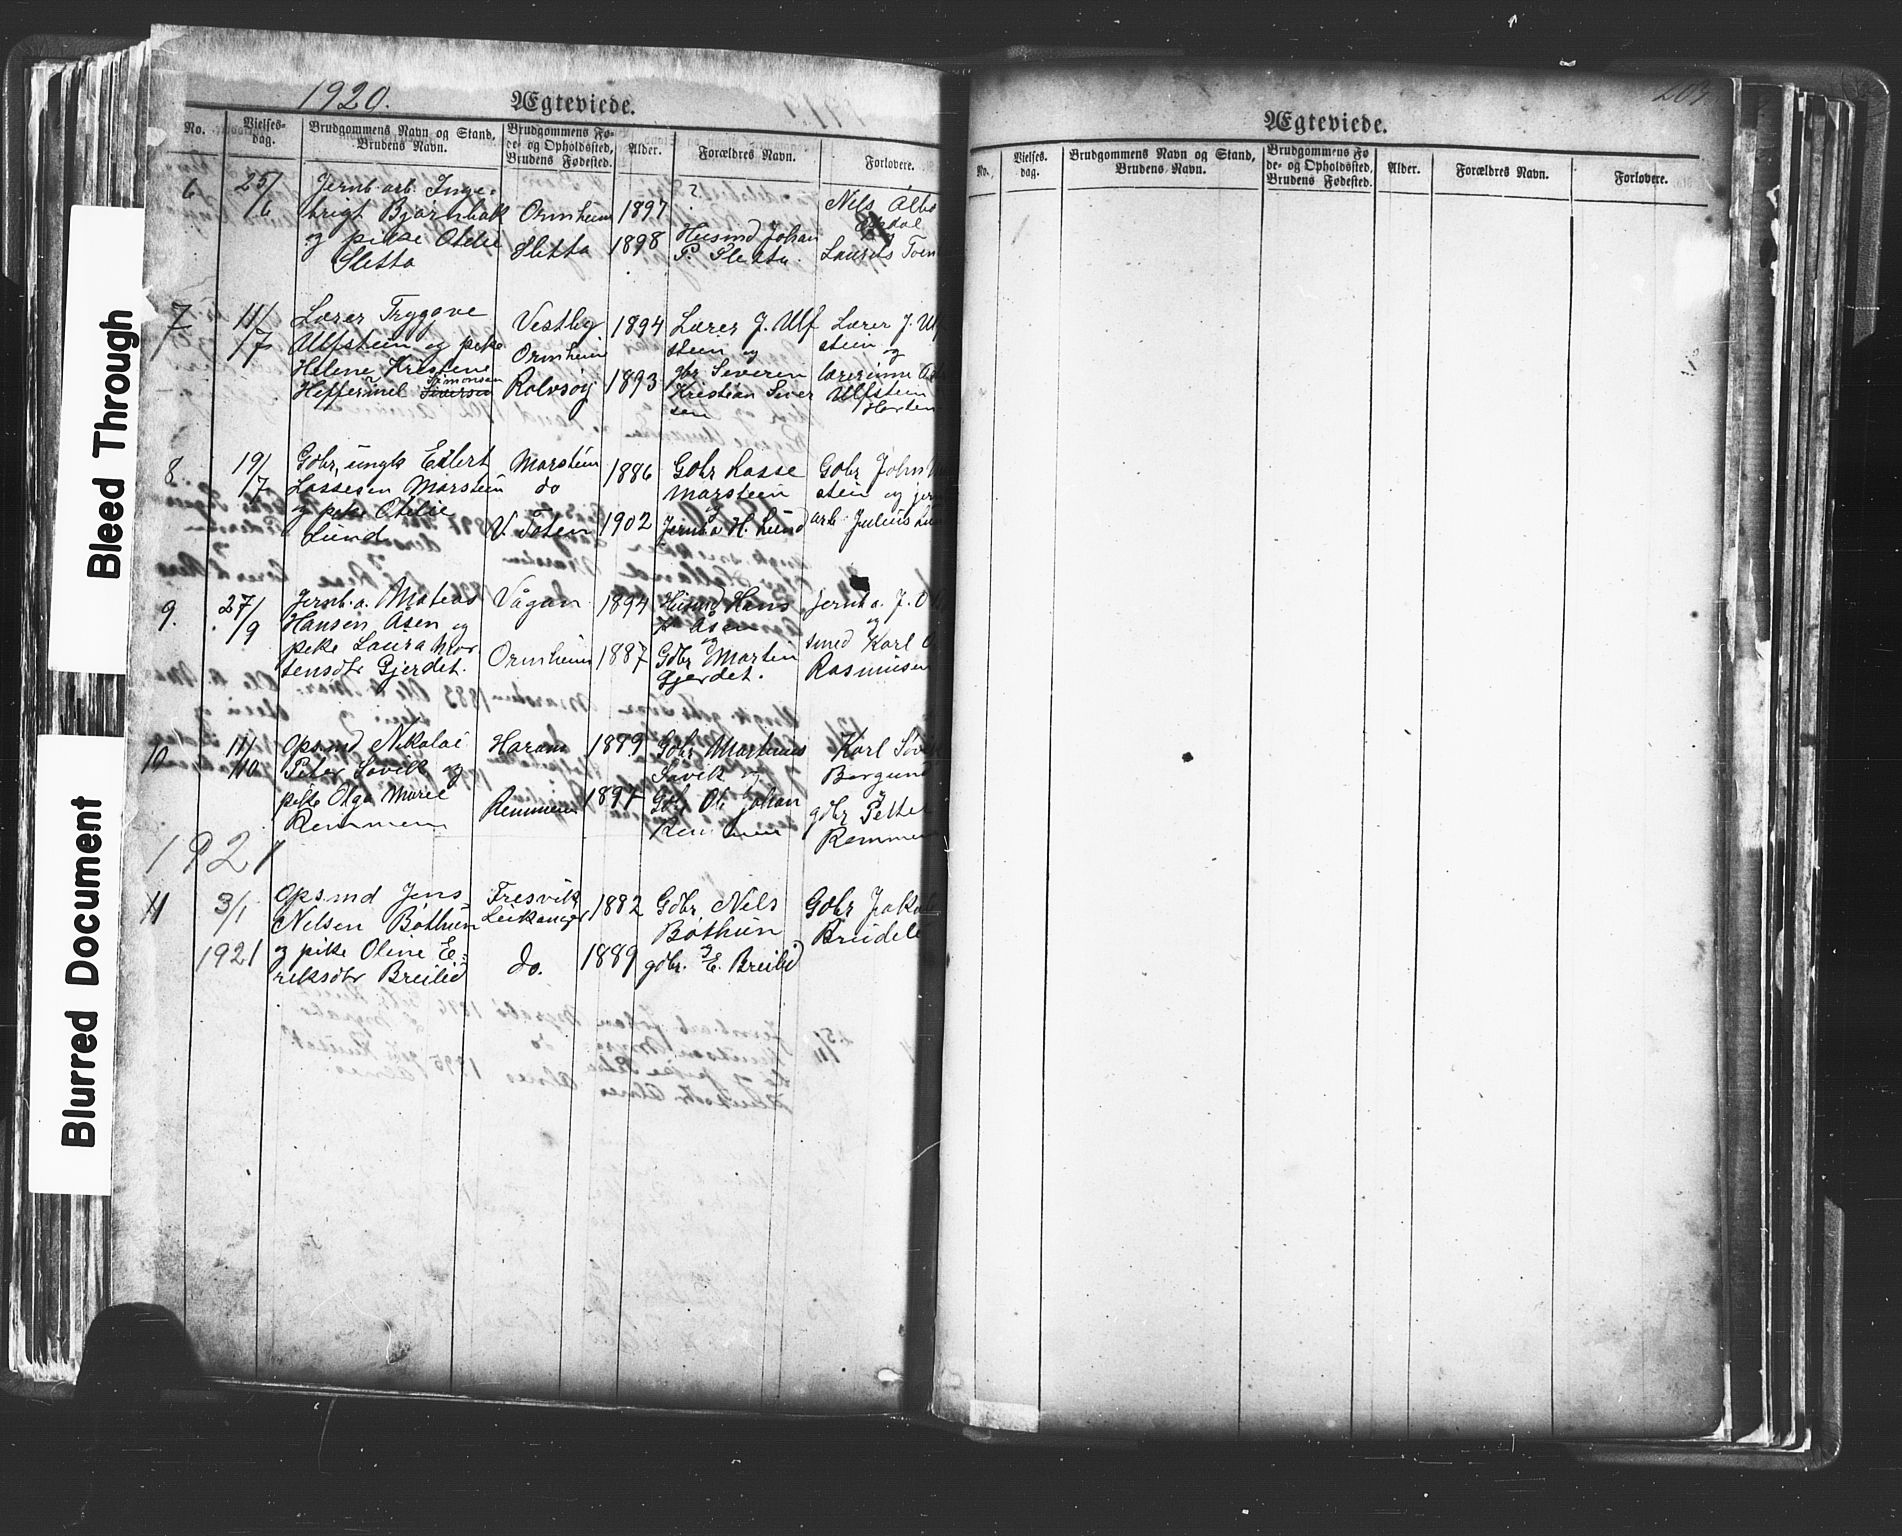 Bleed Through
Blurred Document
1920.
Ægteviede.
No.
Vielses-
dag.
Brudgommens Navn og Stand,
Brudens Navn.
Brudgommens Fø-
de- og Opholdssted,
Brudens Fødested.
Alder.
Forældres Navn.
Forlovere.
6
25/
/6
Jernb. arb. Inge-
brigt Bjørnbak
og pike Otelie
Sletta
Ormheim
Sletta
1897
1898
?
Husmd Johan
P. Sletta.
Nils Albr
Laurits
7
11/
/7
Lærer Tryggve
Ulfstein og pike
Helene Kristene
Heffermel Simonsen
Vestby
Ormheim
Rolvsøy
1894
1893
Lærer J. Ulf
stein og
gbr Severen
Kristian Siver
sen
Lærer J. Ulf
stein
og
lærerinne
Ulfstein
Horten
8
19/
/7
Gdbr, ungk Eilert
Lassesen Marstein
og pike Otelie
Lund
Marstein
do
V. Toten
1886
1902
Gdbr Lasse
Marstein
og
Jernb a H. Lund
Gdbr John
stein og jern
arb. Julius Lun
9.
27/
/9
Jernb. a. Mateas
Hansen Åsen og
pike Laura Mor
tensdtr Gjerdet.
Vågan
Ormheim
1894
1887
Husmd Hans
K Åsen
og
Gdbr Morten
Gjerdet.
Jernb a. J. O
og
smed Karl O
Rasmusen
10
11/
/10
Opsmd Nikolai
Peter Søvik og
pike Olga Marie
Remmem
Haram
Remmem
1889
1897
Gdbr Martinus
Søvik og
Gdbr Ole Johan
Remmem
Karl Søvik
Borgund
og
gdbr Petter
Remmem
1921
11
3/1
1921
Opsmd Jens
Nelsen Bothun
og pike Oline E-
reksdtr Breilid
Fresvik
Leikanger
do.
1882
1889
Gdbr Nils
Bothun
og
gdbr. E. Breilid
Gdbr Jakob
Brudeli
209
Ægteviede.
No.
Vielses-
dag.
Brudgommens Navn og Stand,
Brudens Navn.
Brudgommens Fø
de- og Opholdssted,
Brudens Fødested.
Alder.
Forældres Navn.
Forlovere.